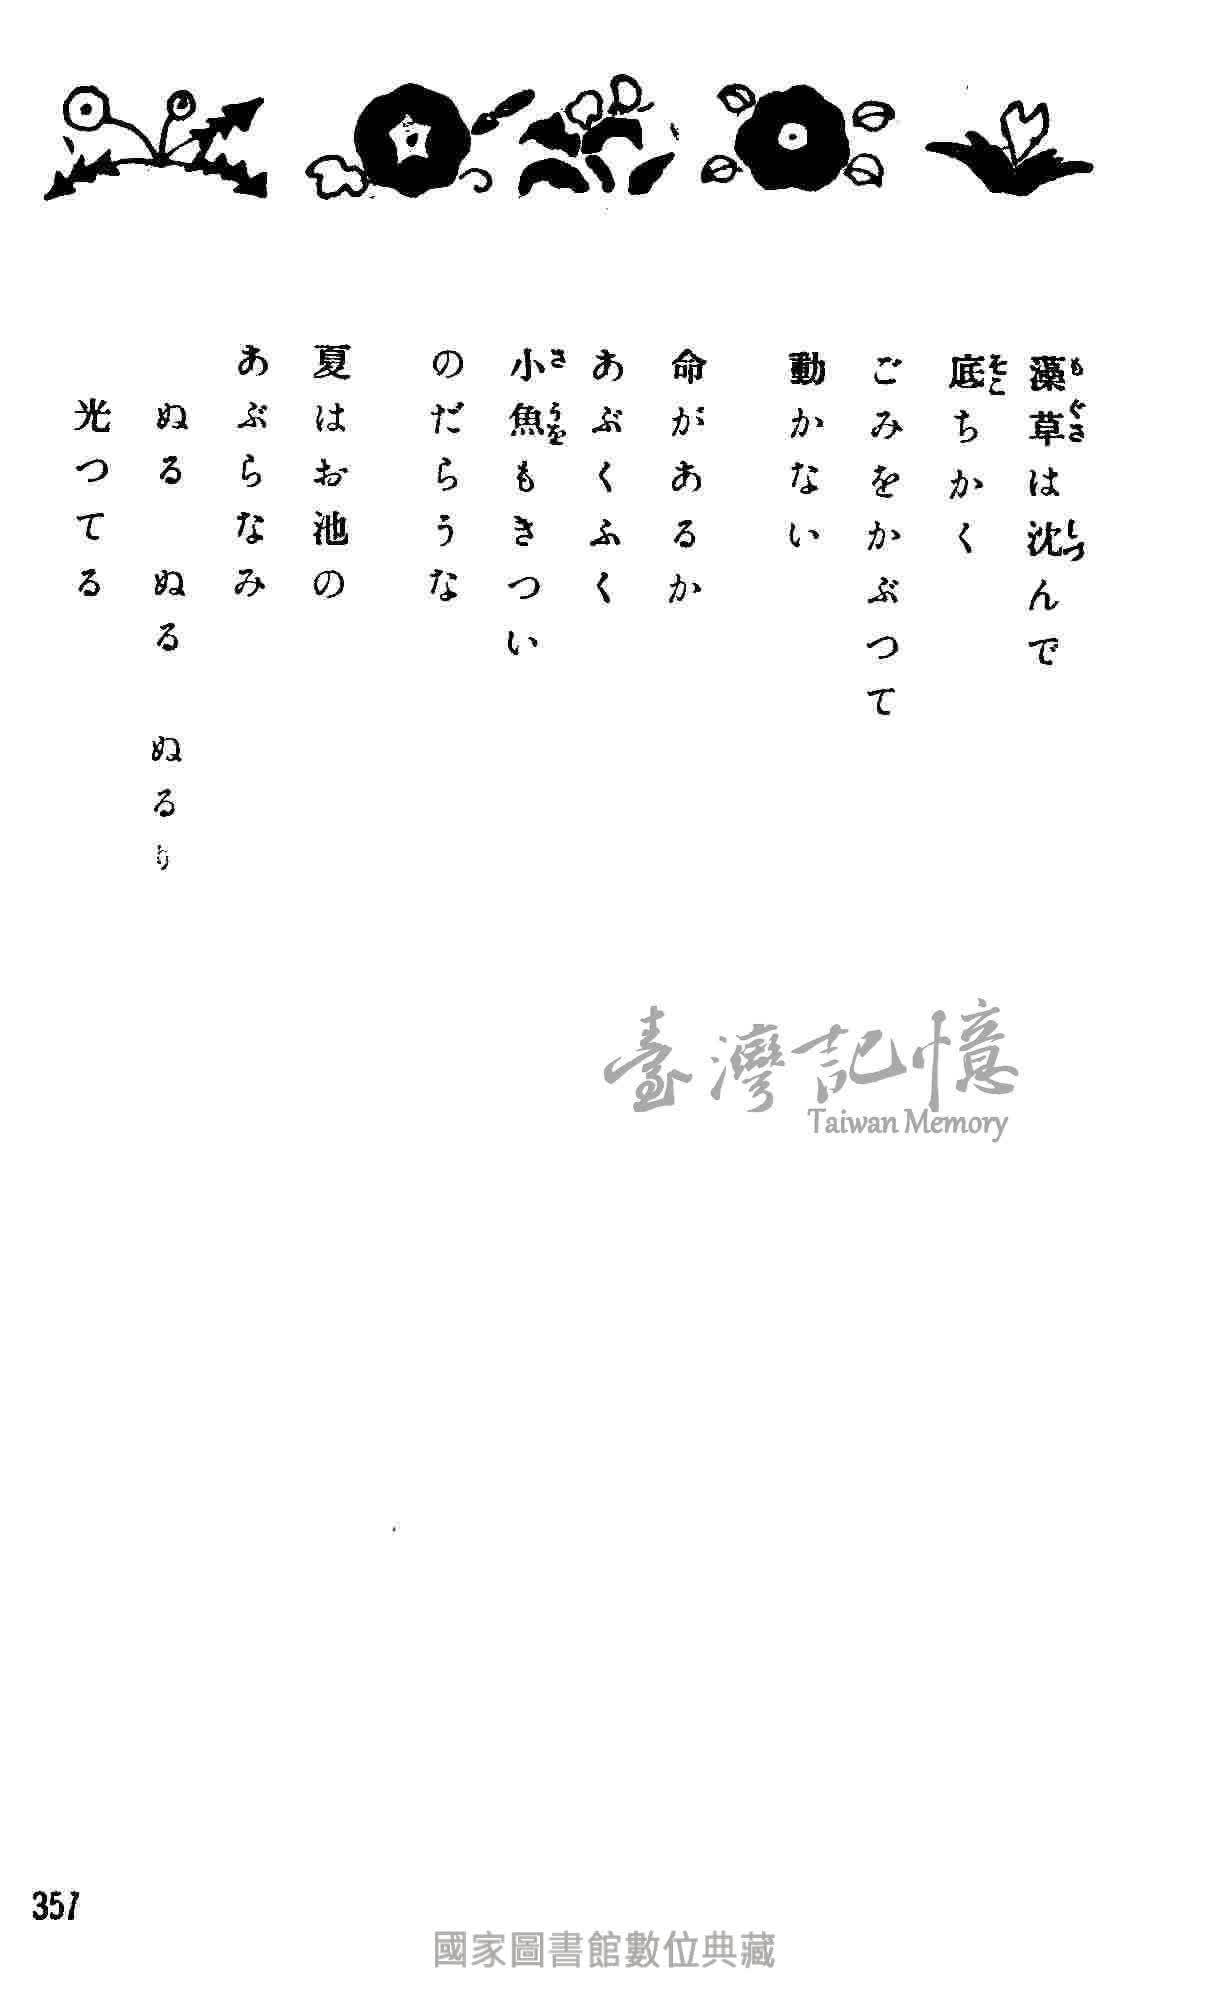 藻草は沈んで
底ちかく
ごみをかぶつて
動かない
命があるか
あぶくふく
小魚もきつい
のだらうな
夏はお池の
あぶらなみ
ぬる ぬる ぬるり
光つてる
もぐさ
しづ
そこ
さうを
臺灣記憶
Taiwan Memory
357
國家圖書館數位典藏